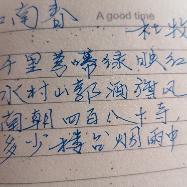 江南春
A good time
杜牧
千里莺啼绿映红
水村山郭酒旗风
南朝四百八十寺,
多少楼台烟雨中